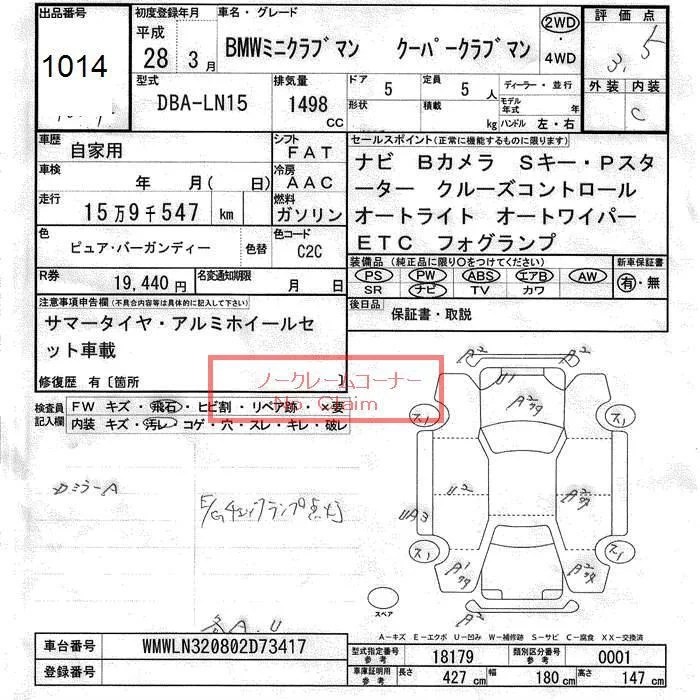 出品番号
1014
初度登録年月
平成
28 3月
車名・グレード
BMWミニクラブマン クーパークラブマン
2WD
・
4WD
評価点
3.5
外装 内装
C
型式
DBA-LN15
排気量
1498
CC
ドア
5
形状
定員
5 人
積載
kg
ディーラー・並行
モデル
年式 年
ハンドル 左・右
車歴
自家用
シフト
FAT
車検
年 月( 日)
冷房
AAC
走行
15万9千547 km
燃料
ガソリン
色
ピュア・バーガンディー
色替
色コード
C2C
R券
19,440 円
名変通知期限
月 日
セールスポイント(正常に機能するものに限ります)
ナビ Bカメラ Sキー・Pスタ
ーター クルーズコントロール
オートライト オートワイパー
ETC フォグランプ
装備品(純正品に限り○をつけてください)
PS PW ABS エアB AW
SR ナビ TV カワ
新車保証書
有・無
後日品
保証書・取説
注意事項申告欄(不具合内容等は具体的に記入して下さい)
サマータイヤ・アルミホイールセ
ット車載
修復歴 有〔箇所 〕
ノークレームコーナー
No Claim
検査員
記入欄
FW キズ・飛石・ヒビ割・リペア跡・×要
内装 キズ・汚レ・コゲ・穴・スレ・キレ・破レ
ロミラーA
E/Gチェックランプ点灯
各A.U
A2 A2
U1
A2
ス1 ス1
U2
A2
UA3
ス1 ス1
A1
A2
A2
スペア
A-キズ E-エクボ U-凹み W-補修跡 S-サビ C-腐食 XX-交換済
車台番号
WMWLN320802D73417
登録番号
型式指定番号
参考
18179
類別区分番号
参考
0001
車庫証明用
参考
長さ
427 cm
幅
180 cm
高さ
147 cm